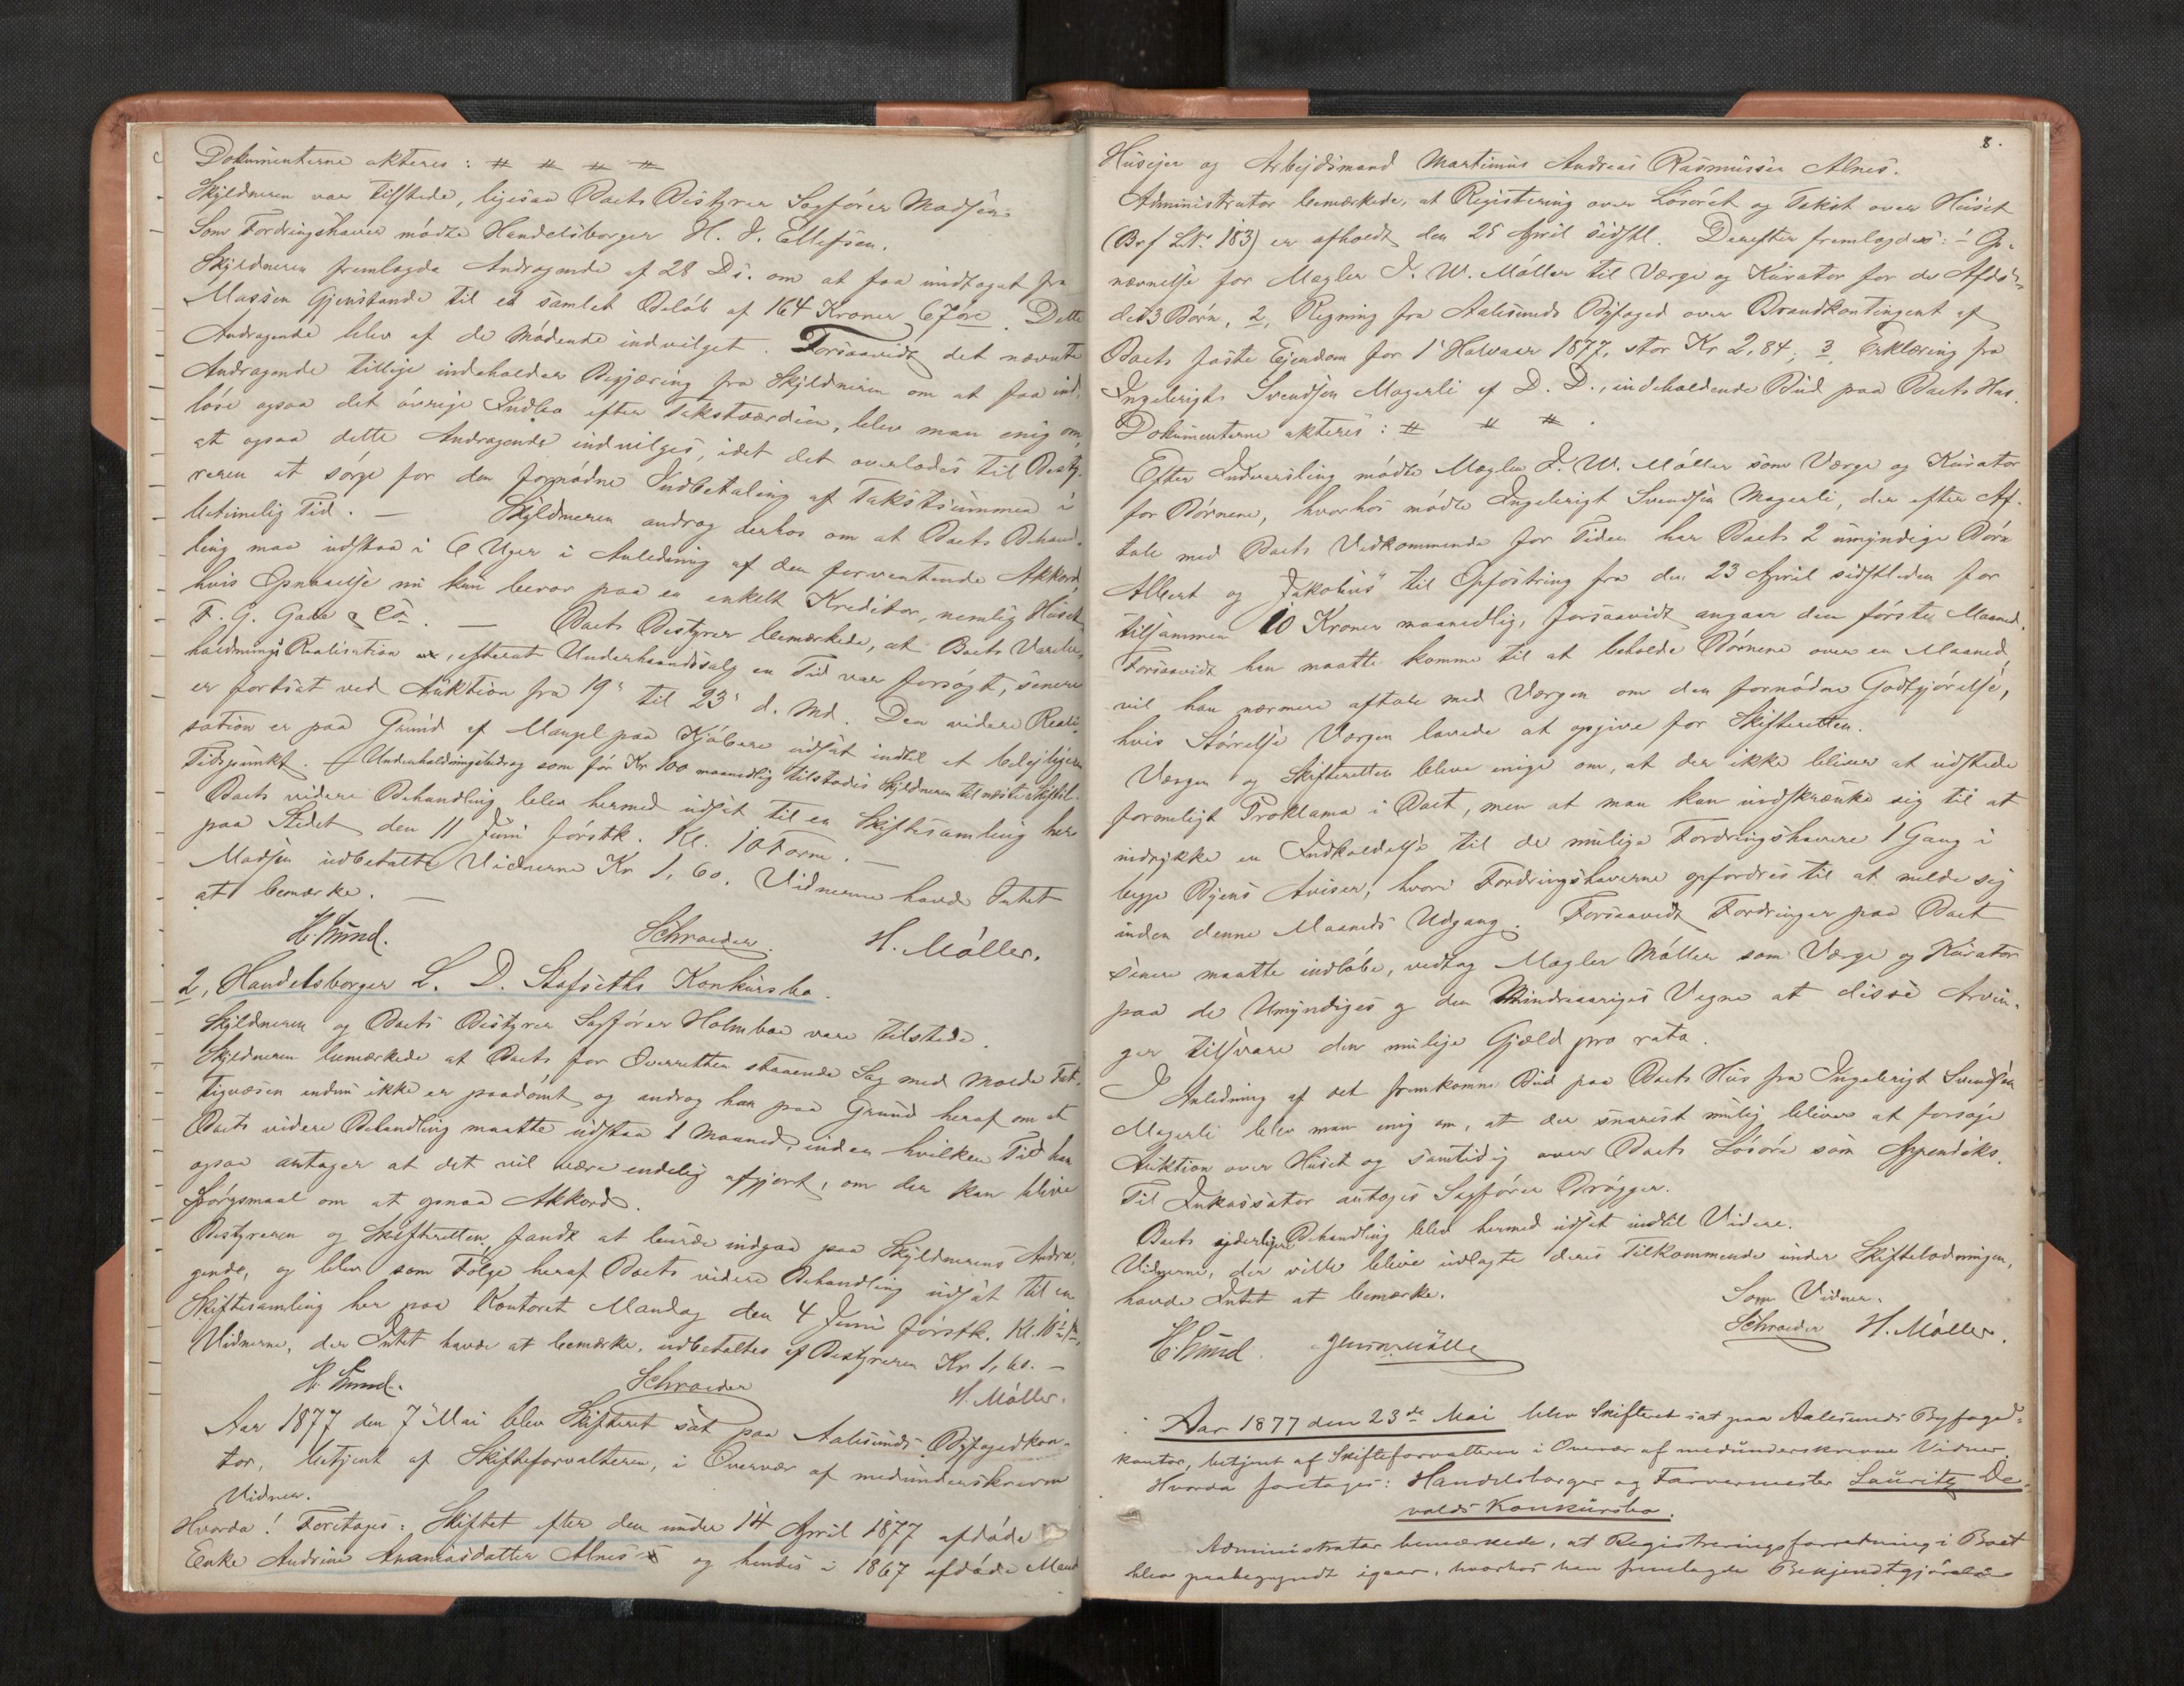 Dokumenterne akteres: # # # #
Skyldneren var tilstede, ligesaa Boets Bestyrer Sagfører Madsen.
Som Fordringshaver mødte Handelsborger H. J. Ellefsen.
Skyldneren fremlagde Andragende af 28 Ds. om at faa undtaget fra
Massen Gjenstande til et samlet Beløb af 164 Kroner 67 øre. Dette
Andragende blev af de Mødende indvilget. Forsaavidt det nævnte
Andragende tillige indeholder Begjæring fra Skyldneren om at faa ind-
løse ogsaa det øvrige Indbo efter Takstværdien, blev man enig om,
at ogsaa dette Andragende indvilges, idet det overlodes til Besty-
reren at sørge for den fornødne Indbetaling af Takstsummen i
betimelig Tid. — Skyldneren androg derhos om at Boets Behand-
ling maa udstaa i 6 Uger i Anledning af den forventende Akkord,
hvis Opnaaelse nu kun beror paa en enkelt Kreditor, nemlig Huset
F. G. Gade & Co. — Boets Bestyrer bemærkede, at Boets Varebe-
holdnings Realisation, efterat Underhaandssalg en Tid var forsøgt, senere
er fortsat ved Auktion fra 19' til 23' d. Md. Den videre Reali-
sation er paa Grund af Mangel paa Kjøbere udsat indtil et belejligere
Tidspunkt. Underholdningsbidrag som før Kr 100 maanedlig tilstodes Skyldneren til næste Skiftesl.
Boets videre Behandling blev hermed udsat til en Skiftesamling her
paa Stedet den 11 Juni førstk. Kl. 10 Form. —
Madsen udbetalte Vidnerne Kr 1,60. Vidnerne havde Intet
at bemærke. —
Schroeder. H. Møller.
2, Handelsborger L. D. Stafseths Konkursbo.
Skyldneren og Boets Bestyrer Sagfører Holmboe vare tilstede.
Skyldneren bemærkede at Boets for Overretten staaende Sag med Molde Fat-
tigvæsen endnu ikke er paadømt, og androg han paa Grund heraf om at
Boets videre Behandling maatte udstaa 1 Maaned, inden hvilken Tid han
ogsaa antager at det vil være endelig afgjort, om der kan blive
Spørgsmaal om at opnaa Akkord.
Bestyreren og Skifteretten fandt at burde indgaa paa Skyldnerens Andra-
gende, og blev som Følge heraf Boets videre Behandling udsat til en
Skiftesamling her paa Kontoret Mandag den 4 Juni førstk. Kl. 10
Vidnerne, der Intet havde at bemærke, udbetaltes af Bestyreren Kr 1,60. —
Schroeder H. Møller.
Aar 1877 den 7 Mai blev Skifteret sat paa Aalesunds Byfogedkon-
tor, betjent af Skifteforvalteren, i Overvær af medunderskrevne
Vidner.
Hvorda! Foretoges: Skiftet efter den under 14 April 1877 afdøde
Enke Andrine Ananiasdatter Alnes og hendes i 1867 afdøde Mand
8.
Husejer og Arbejdsmand Martinus Andreas Rasmussen Alnes.
Administrator bemærkede, at Registrering over Løsøret og Takst over Huset
(Brf L.Nr 183) er afholdt den 25 April sidstl. Derefter fremlagdes: 1 Op-
nævnelse for Mægler J. W. Møller til Værge og Kurator for de Afdø-
des 3 Børn, 2, Regning fra Aalesunds Byfoged over Brandkontingent af
Boets faste Ejendom for 1' Halvaar 1877, stor Kr 2,84; 3 Erklæring fra
Ingebrigt Svendsen Magerli af D. D., indeholdende Bud paa Boets Hus.
Dokumenterne akteres: # # #.
Efter Indvarsling mødte Mægler J. W. Møller som Værge og Kurator
for Børnene, hvorhos mødte Ingebrigt Svendsen Magerli, der efter Af-
tale med Boets Vedkommende for Tiden har Boets 2 umyndige Børn
Albert og Jakobus til Opfostring fra den 23 April sidstleden for
tilsammen 10 Kroner maanedlig, forsaavidt angaar den første Maaned.
Forsaavidt han maatte komme til at beholde Børnene over en Maaned,
vil han nærmere aftale med Værgen om den fornødne Godtgjørelse,
hvis Størrelse Værgen lovede at opgive for Skifteretten.
Værgen og Skifteretten bleve enige om, at der ikke bliver at udstede
formeligt Proklama i Boet, men at man kun indskrænke sig til at
indrykke en Indkaldelse til de mulige Fordringshavere 1 Gang i
begge Byens Aviser, hvori Fordringshaverne opfordres til at melde sig
inden denne Maaneds Udgang. Forsaavidt Fordringer paa Boet
senere maatte indløbe, vedtog Mægler Møller som Værge og Kurator
paa de Umyndiges og den Mindreaariges Vegne at disse Arvin-
ger tilsvare den mulige Gjæld pro rata.
I Anledning af det fremkomne Bud paa Boets Hus fra Ingebrigt Svendsen
Magerli blev man enig om, at der snarest mulig bliver at forsøge
Auktion over Huset og samtidig over Boets Løsøre som Appendiks.
Til Inkassator antoges Sagfører Brøgger.
Boets yderligere Behandling blev hermed udsat indtil Videre.
Vidnerne, der ville blive udlagte deres Tilkommende under Skifteladningen,
havde Intet at bemærke. Som Vidner.
Schroeder H. Møller.
Aar 1877 den 23de Mai blev Skifteret sat paa Aalesunds Byfoged-
kontor, betjent af Skifteforvalteren i Overvær af medunderskrevne Vidner.
Hvorda foretoges: Handelsborger og Farvermester Lauritz De-
volds Konkursbo.
Administrator bemærkede, at Registreringsforretning i Boet
blev paabegyndt igaar, hvorhos han fremlagde Bekjendtgjørelse